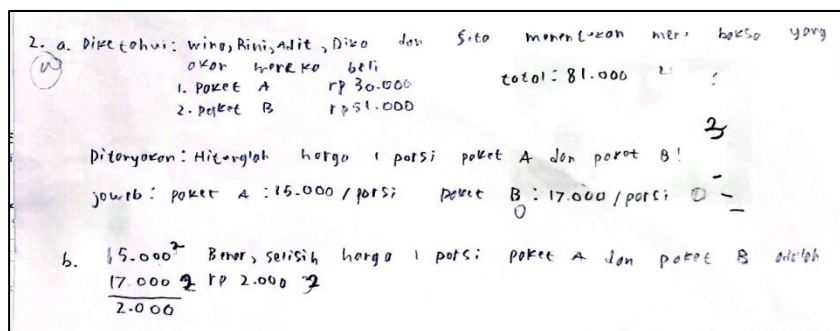 2. a. Diketahui: wino, Rini, Adit, Diko dan Sito menentukan menu bakso yang
akan mereka beli
1. Paket A rp 30.000 total: 81.000
2. paket B rp 51.000
3
Ditanyakan: Hitunglah harga 1 porsi paket A dan paket B!
jawab: paket A : 15.000 / porsi paket B : 17.000 / porsi
b. 15.000 2 Benar, selisih harga 1 porsi paket A dan paket B adalah
17.000 2 rp 2.000 2
2.000